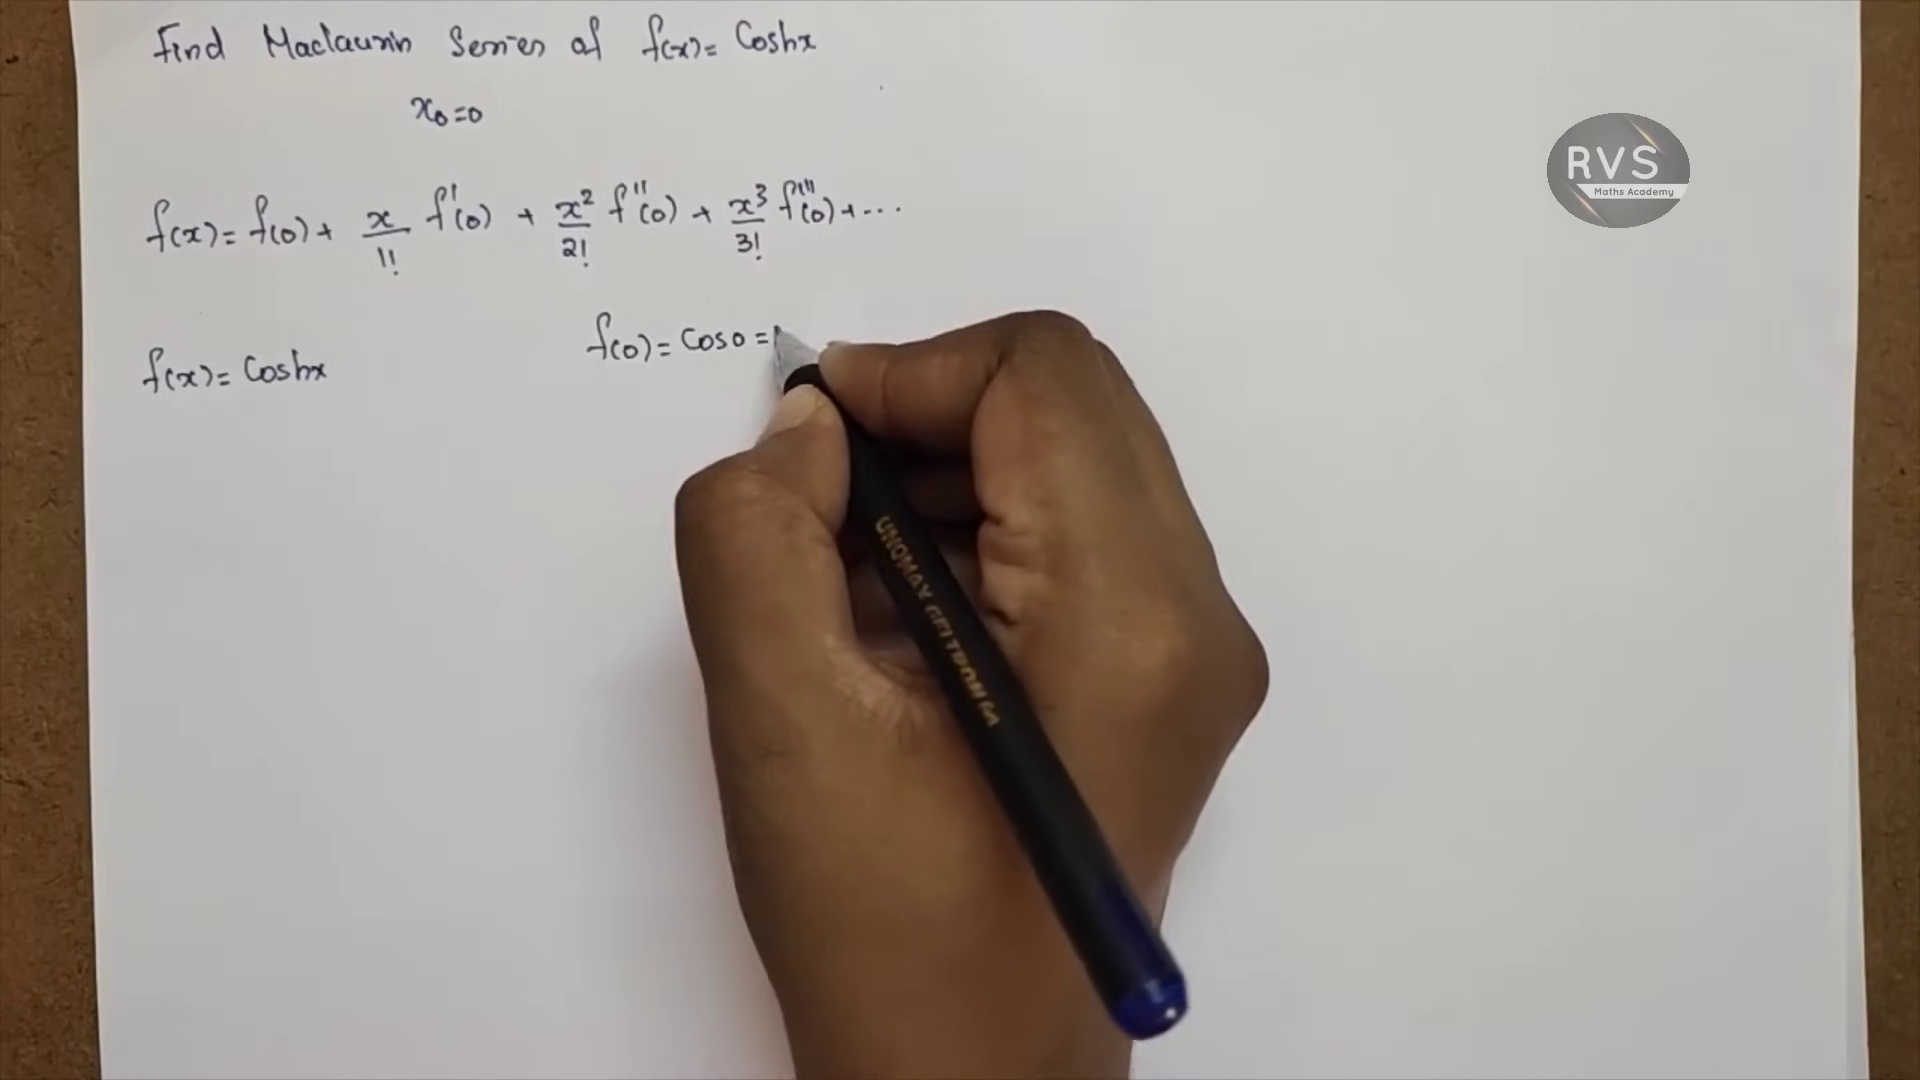 Find Maclaurin Series of f(x) = Coshx
x₀=0
RVS
Maths Academy
f(x) = f(0) + x/1! f'(0) + x²/2! f''(0) + x³/3! f'''(0) + ...
f(0) = Cos0 =
f(x) = Coshx
UNOMAX GELTRON GA